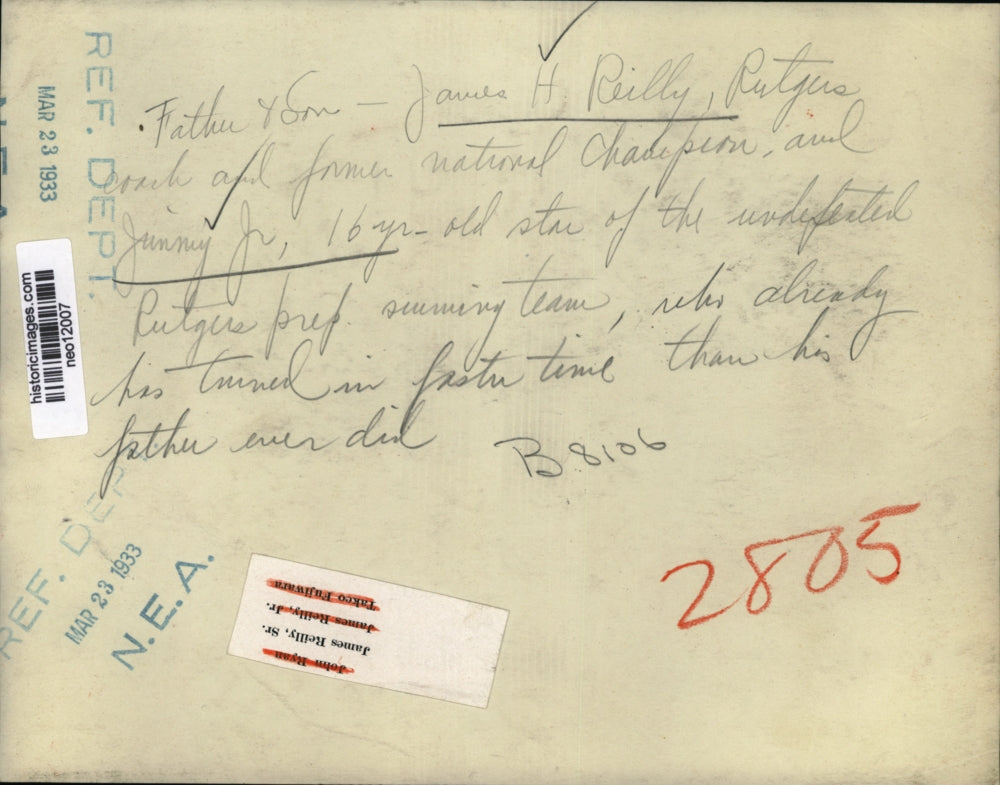 REF. DEPT.
MAR 23 1933
Father & Son — James H. Reilly, Rutgers
coach and former national champion, and
Jimmy Jr, 16-yr-old star of the undefeated
Rutgers prep. swimming team, who already
has turned in faster time than his
father ever did
B 8106
historicimages.com
neo12007
REF. DEPT.
MAR 23 1933
N.E.A.
2805
John Ryan
James Reilly, Sr.
James Reilly, Jr.
Takeo Fujiwara